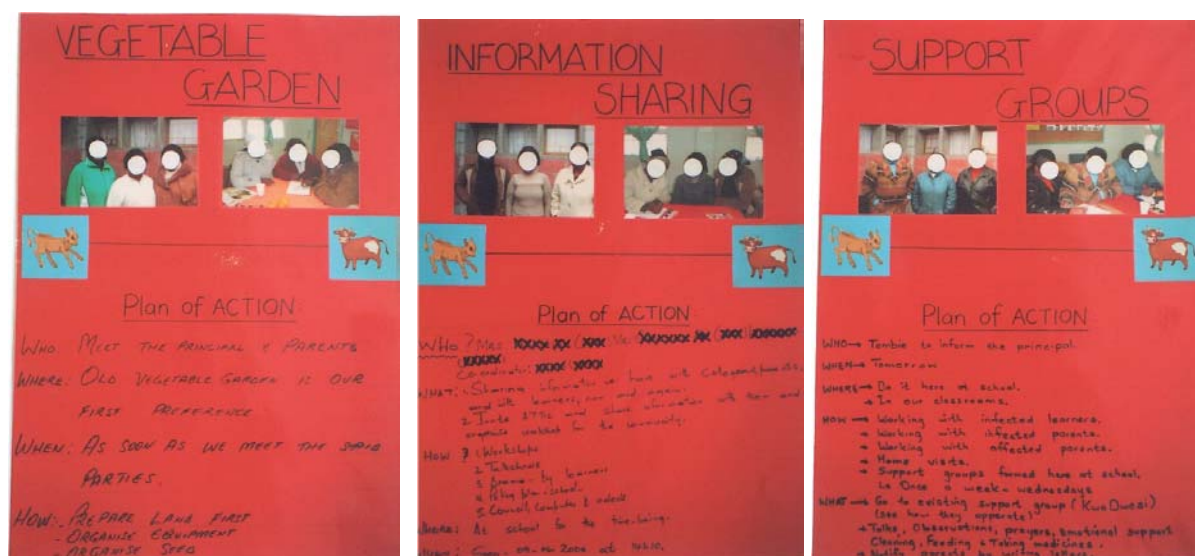 VEGETABLE
GARDEN
Plan of ACTION:
WHO: MEET THE PRINCIPAL & PARENTS
WHERE: OLD VEGETABLE GARDEN IS OUR
FIRST PREFERENCE
WHEN: AS SOON AS WE MEET THE SAID
PARTIES.
HOW: - PREPARE LAND FIRST
- ORGANISE EQUIPMENT
- ORGANISE SEED
INFORMATION
SHARING
Plan of ACTION
WHO? Mrs
Co-ordinator:
WHAT: Sharing information we have with
and with learners, now and again.
2. Invite and share information with them and
organise for the community.
HOW ? 1. Workshops
2. Talkshows
3. Drama - by learners
4. Policy
5. Council, Conduct &
WHERE: At school for the time-being.
SUPPORT
GROUPS
Plan of ACTION
WHO → Tombie to inform the principal.
WHEN → Tomorrow
WHERE → Do it here at school.
→ In our classrooms.
HOW → Working with infected learners.
→ Working with infected parents.
→ Working with affected parents.
→ Home visits.
→ Support groups formed here at school.
Once a week - wednesdays
WHAT → Go to existing support group (
(see how they operate)
→ Talks, Observations, prayers, Emotional support
Cleaning, Feeding & Taking medicines.
→ Notify parents by writing letters.